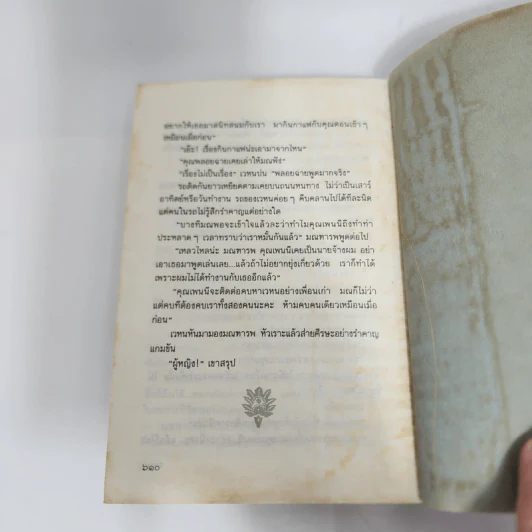 อยากให้เธอมาสนิทสนมกับเรา มากินกาแฟกับคุณตอนเช้าๆ
เหมือนเมื่อก่อน"
"เอ๊ะ! เรื่องกินกาแฟน่ะเอามาจากไหน"
"คุณพลอยฉายเคยเล่าให้มณฟัง"
"เรื่องไม่เป็นเรื่อง" เวหนบ่น "พลอยฉายพูดมากจริง"
รถติดกันยาวเหยียดตามเคยบนถนนหนทาง ไม่ว่าเป็นเสาร์
อาทิตย์หรือวันทำงาน รถของเวหนค่อยๆ คืบคลานไปได้ทีละนิด
แต่คนในรถไม่รู้สึกรำคาญแต่อย่างใด
"บางทีมณพอจะเข้าใจแล้วละว่าทำไมคุณเพนนีถึงทำท่า
ประหลาดๆ เวลาทราบว่าเราหมั้นกันแล้ว" มณฑารพพูดต่อไป
"เหลวไหลน่ะ มณฑารพ คุณเพนนีเคยเป็นนายจ้างผม อย่า
เอาเธอมาพูดเล่นเลย...แล้วถ้าไม่อยากยุ่งเกี่ยวด้วย เราก็ทำได้
เพราะผมไม่ได้ทำงานกับเธออีกแล้ว"
"คุณเพนนีจะติดต่อคบหาเวหนอย่างเพื่อนเก่า มณก็ไม่ว่า
แต่คบก็ต้องคบเราทั้งสองคนนะคะ ห้ามคบคนเดียวเหมือนเมื่อ
ก่อน"
เวหนหันมามองมณฑารพ หัวเราะแล้วส่ายศีรษะอย่างรำคาญ
แกมขัน
"ผู้หญิง!" เขาสรุป
๖๑๐